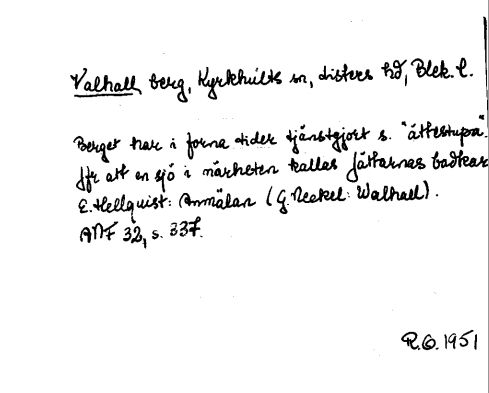 Valhall, berg, Kyrkhults sn, Listers hd, Blek. l.
Berget har i forna tider tjänstgjort s. "ättestupa".
Jfr att en sjö i närheten kallas Jättarnas badkar
E. Hellquist: Anmälan (G. Neckel: Walhall).
ANF 32, s. 337.
R.O. 1951